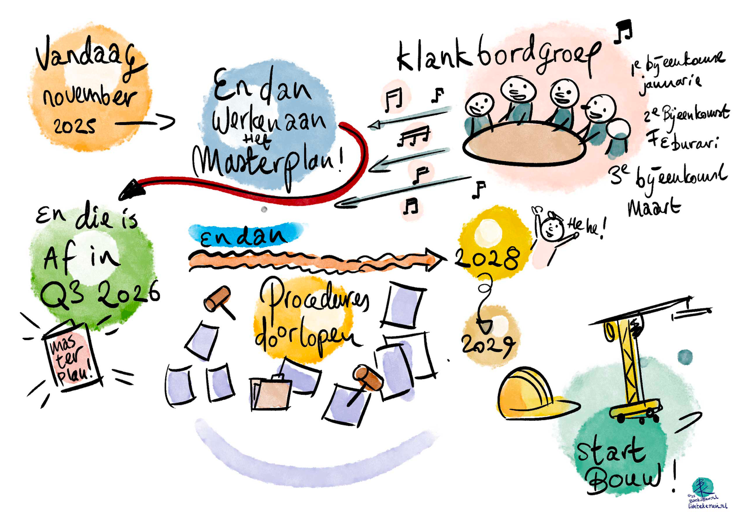 Vandaag
november
2025
En dan
werken aan
het
Masterplan!
klankbordgroep
1e bijeenkomst
januarie
2e Bijeenkomst
Feburari
3e bijeenkomst
Maart
En die is
Af in
Q3 2026
mas
ter
plan!
En dan
Procedures
doorlopen
2028
Hehe!
2029
start
Bouw!